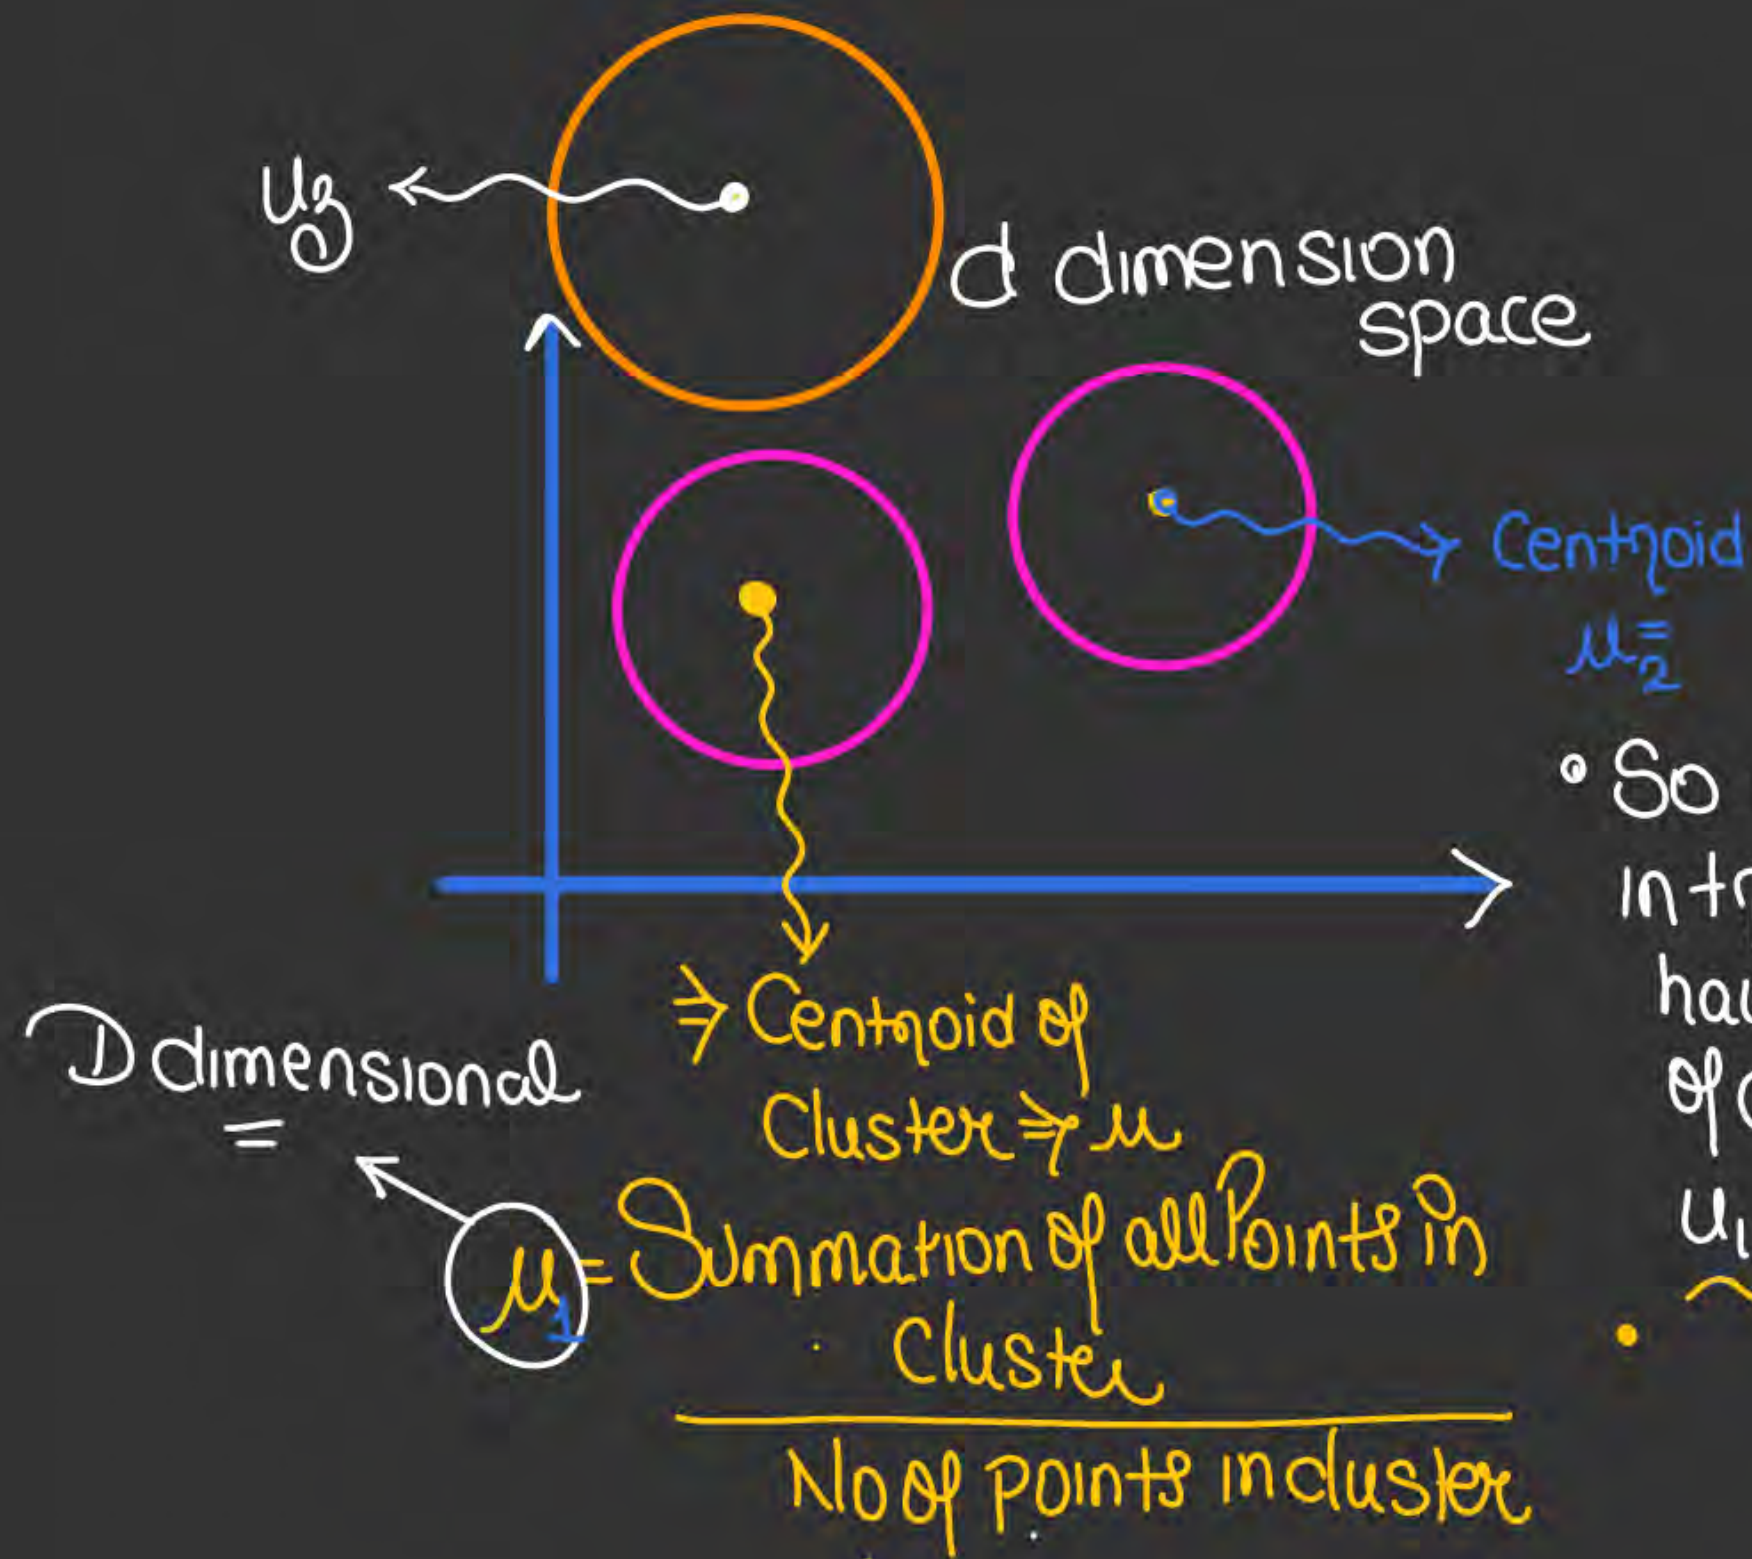 u3
d dimension
space
Centroid
μ2 =
• So
D dimensional
=
⇒ Centroid of
Cluster ⇒ μ
μ1 = Summation of all Points in
Cluster
No of points in cluster
of
u1